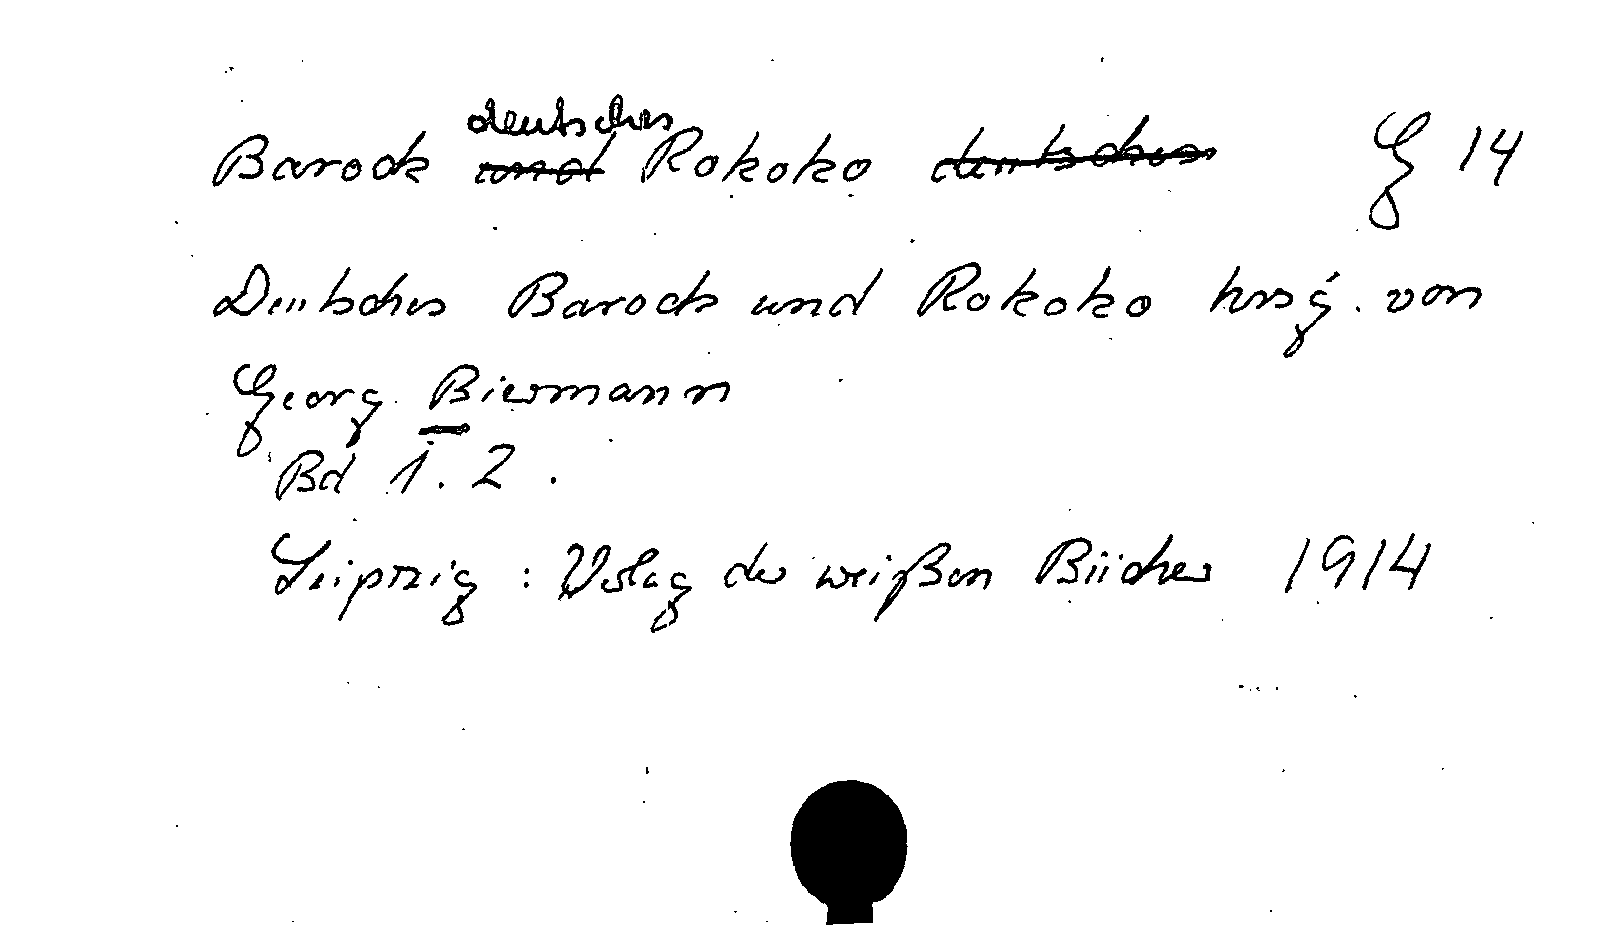 Barock deutsches Rokoko G 14
Deutsches Barock und Rokoko hrsg. von
Georg Biermann
Bd 1. 2.
Leipzig : Verlag der weißen Bücher 1914